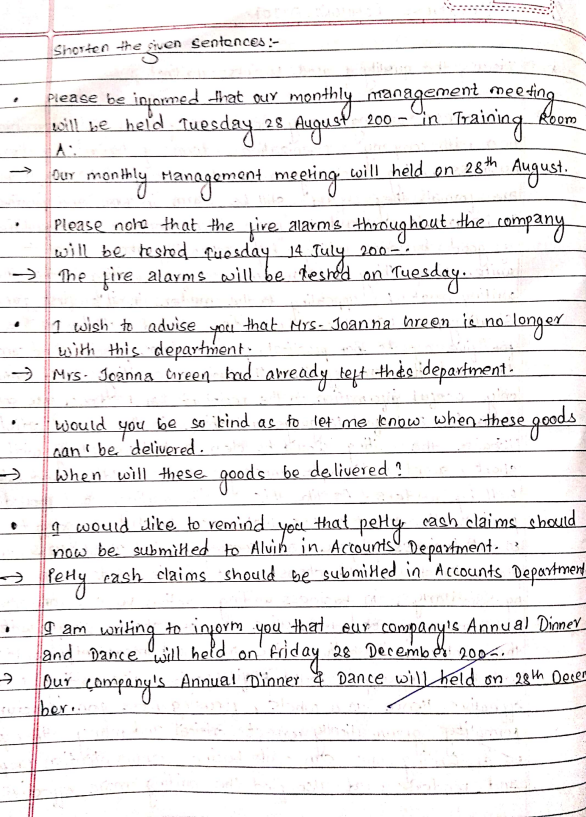 Shorten the given sentences:-
• Please be informed that our monthly management meeting
will be held Tuesday 28 August 200- in Training Room
A.
→ Our monthly Management meeting will held on 28th August.
• Please note that the fire alarms throughout the company
will be tested Tuesday 14 July 200-.
→ The fire alarms will be tested on Tuesday.
• I wish to advise you that Mrs. Joanna Green is no longer
with this department.
→ Mrs. Joanna Green had already left this department.
• Would you be so kind as to let me know when these goods
can be delivered.
→ When will these goods be delivered?
• I would like to remind you that petty cash claims should
now be submitted to Alvin in Accounts Department.
→ Petty cash claims should be submitted in Accounts Department
• I am writing to inform you that our company's Annual Dinner
and Dance will held on Friday 28 December 200-.
→ Our company's Annual Dinner & Dance will held on 28th Decem
ber.